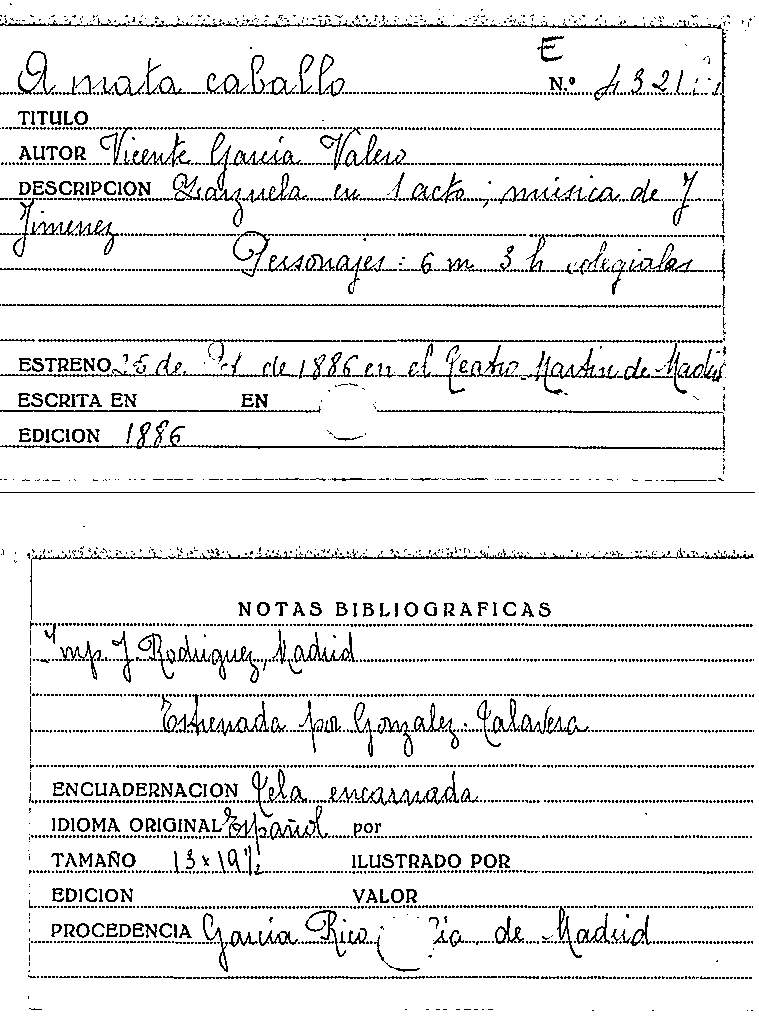 E
A mata caballo N.º 4321
TITULO
AUTOR Vicente García Valero
DESCRIPCION Zarzuela en 1 acto; música de J
Jimenez
Personajes: 6 m 3 h colegialas
ESTRENO 25 de Oct de 1886 en el Teatro Martin de Madrid
ESCRITA EN EN
EDICION 1886
NOTAS BIBLIOGRAFICAS
Imp. J. Rodriguez, Madrid
Estrenada por Gonzalez. Talavera
ENCUADERNACION Tela encarnada
IDIOMA ORIGINAL Español por
TAMAÑO 13 x 19½
ILUSTRADO POR
EDICION VALOR
PROCEDENCIA García Rico, Cia, de Madrid